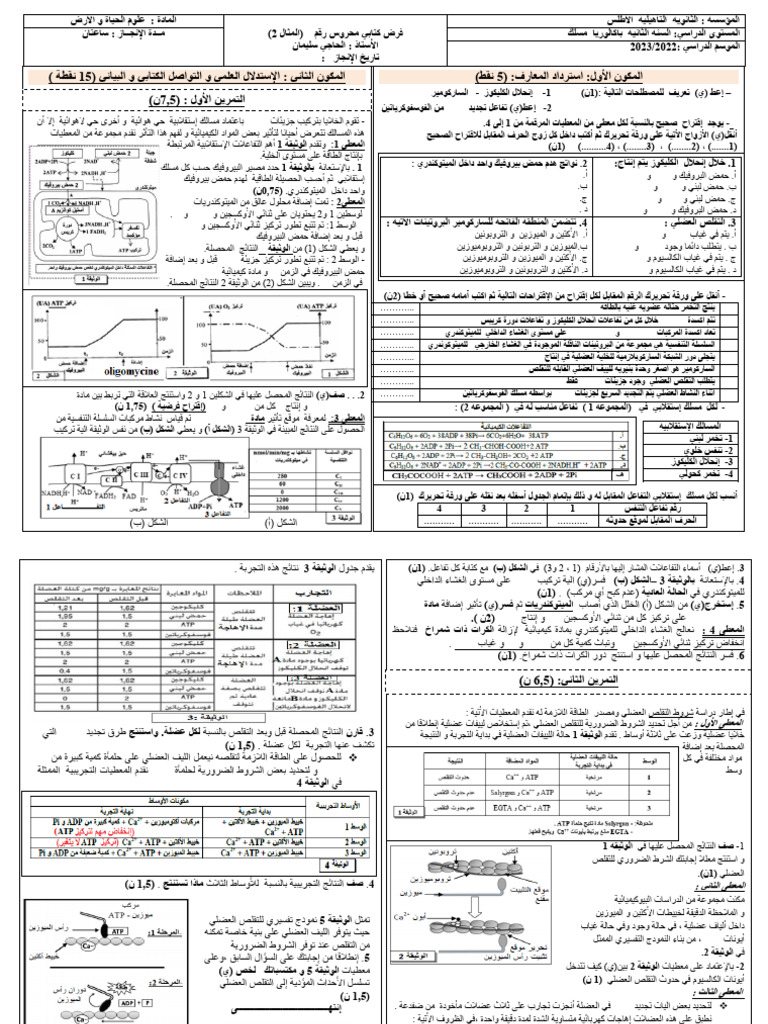 المؤسسة : الثانوية التأهيلية الأطلس
المستوى الدراسي: السنة الثانية باكالوريا مسلك
الموسم الدراسي: 2023/2022
فرض كتابي محروس رقم (المثال 2)
الأستاذ : الحاجي سليمان
تاريخ الإنجاز :
المادة : علوم الحياة و الأرض
مدة الإنجاز : ساعتان
المكون الأول: استرداد المعارف: (5 نقط)
– إعط(ي) تعريف للمصطلحات التالية :(1ن) 1- إنحلال الكليكوز - الساركومير
2- إعط(ي) تفاعل تجديد من الفوسفوكرياتين
- يوجد إقتراح صحيح بالنسبة لكل معطى من المعطيات المرقمة من 1 إلى 4.
أنقل(ي) الأزواج الآتية على ورقة تحريرك ثم أكتب داخل كل زوج الحرف المقابل للاقتراح الصحيح
(1، .........) ; (2، .........) ; (3، .........) ; (4، .........) (1ن)
1. خلال إنحلال الكليكوز يتم إنتاج:
أ. حمض البيروفيك و و
ب. حمض لبني و و
ج. حمض البيروفيك و
د. حمض البيروفيك و
2. نواتج هدم حمض بيروفيك واحد داخل الميتوكندري :
أ.
ب.
ج.
د.
3. التقلص العضلي :
أ. يتم في غياب و و
ب. يتطلب دائما وجود و
ج. يتم في غياب الكالسيوم و
د. يتم في غياب الكالسيوم و
4. تتضمن المنطقة الفاتحة للساركومير البروتينات الآتية :
أ. الأكتين و الميوزين و التروبونين
ب.الميوزين و التروبونين و التروبوميوزين
ج. الأكتين و التروبونين و التروبوميوزين
د. الأكتين و الميوزين و التروبوميوزين
- أنقل على ورقة تحريرك الرقم المقابل لكل إقتراح من الإقتراحات التالية ثم اكتب أمامه صحيح أو خطأ (2ن)
ينتج التخمر حثالة عضوية غنية بالطاقة
تتم أكسدة خلال كل من تفاعلات انحلال الكليكوز و تفاعلات دورة كريبس
تعاد أكسدة المركبات و على مستوى الغشاء الداخلي للميتوكندري
السلسلة التنفسية هي مجموعة من البروتينات الناقلة الموجودة في الغشاء الخارجي للميتوكندري
يتجلى دور الشبكة الساركوبلازمية للخلية العضلية في إنتاج
الساركومير هو أصغر وحدة بنيوية للييف العضلي القابلة للتقلص
يتطلب التقلص العضلي وجود جزيئات فقط
أثناء النشاط العضلي يتم التجديد السريع لجزيئات بواسطة مسلك الفوسفوكرياتين
- لكل مسلك إستقلابي في (المجموعة 1 ) تفاعل مناسب له في ( المجموعة 2) :
المسالك الإستقلابية
1- تخمر لبني
2- تنفس خلوي
3- إنحلال الكليكوز
4- تخمر كحولي
التفاعلات الكيميائية
أ. C₆H₁₂O₆ + 6O₂ + 38ADP + 38Pi→ 6CO₂+6H₂O+ 38ATP
ب. C₆H₁₂O₆ + 2ADP + 2Pi → 2 CH₃-CHOH-COOH + 2ATP
ج. C₆H₁₂O₆ + 2ADP + 2Pi→ 2 CH₃-CH₂OH + 2CO₂ + 2 ATP
د. C₆H₁₂O₆ + 2NAD⁺ +2ADP + 2Pi→ 2 CH₃-CO-COOH + 2NADH,H⁺ + 2ATP
هـ. CH₃COCOOH + 2ATP → CH₃COOH + 2ADP + 2Pi
أنسب لكل مسلك إستقلابي التفاعل المقابل له و ذلك بإتمام الجدول أسفله بعد نقله على ورقة تحريرك (1ن)
رقم تفاعل التنفس 1 2 3 4
الحرف المقابل لموقع حدوثه
المكون الثاني : الإستدلال العلمي و التواصل الكتابي و البياني (15 نقطة )
التمرين الأول : (7,5ن)
- تقوم الخلايا بتركيب جزيئات باعتماد مسالك إستقلابية هي هوائية و أخرى حي لاهوائية إلا أن
هذه المسالك تتعرض أحيانا لتأثير بعض المواد الكيميائية و لفهم هذا التأثر نقدم مجموعة من المعطيات
المعطى 1: وتقدم الوثيقة 1 أهم التفاعلات الإستقلابية المرتبطة
بإنتاج الطاقة على مستوى الخلية.
1 . بالإستعانة بالوثيقة 1 حدد مصير البيروفيك حسب كل مسلك
إستقلابي ثم أحسب الحصيلة الطاقية لهدم حمض بيروفيك
واحد داخل الميتوكندري. (0,75ن)
المعطى2: تمت إضافة محلول عالق من الميتوكندريات
لوسطين 1 و2 يحتويان على ثنائي الأوكسجين و .
- الوسط 1 : تم تتبع تطور تركيز و ثنائي الأوكسجين
قبل و بعد إضافة حمض البيروفيك
و يعطي الشكل (1) من الوثيقة النتائج المحصلة.
- الوسط 2 : تم تتبع تطور تركيز جزيئة قبل و بعد إضافة
حمض البيروفيك في الزمن و مادة كيميائية
في الزمن . ويبين الشكل (2) من الوثيقة 2 النتائج المحصلة.
الوثيقة 1
تركيز ATP (UA)
تركيز O₂ (UA)
تركيز ATP (UA)
100
50
0
الزمن
oligomycine
الوثيقة 2
شكل 1
شكل 2
2. . . صف(ي) النتائج المحصل عليها في الشكلين 1 و 2 واستنتج العلاقة التي تربط بين مادة
و إنتاج كل من و (إقتراح فرضية ) (1,75 ن)
المعطى 3: لمعرفة موقع تأثير مادة تم قياس نشاط مركبات السلسلة التنفسية من
الحصول على النتائج المبينة في الوثيقة 3 (الشكل أ) و يعطي الشكل (ب) من نفس الوثيقة آلية تركيب
حيز بيغشائي
H⁺
C I C II C III C IV
NADH,H⁺ NAD⁺ FADH₂ FAD
ماتريس
التفاعل 1
التفاعل 2
التفاعل 3
ADP+Pi ATP
غشاء داخلي
الشكل (ب)
الشكل (أ)
نواقل السلسلة التنفسية
نشاطها ب nmol/min/mg في ميتوكندريات
280
60
0
1200
2000
الوثيقة 3
3. إعط(ي) أسماء التفاعلات المشار إليها بالأرقام (1 ، 2و 3) في الشكل (ب) مع كتابة كل تفاعل. (1ن)
4. بالإستعانة بالوثيقة 3 –الشكل (ب) فسر(ي) آلية تركيب على مستوى الغشاء الداخلي
للميتوكندري في الحالة العادية (عدم كبح أي مركب) . (1ن)
5. إستخرج(ي) من الشكل (أ) الخلل الذي أصاب الميتوكندريات ثم فسر(ي) تأثير إضافة مادة
على تركيز كل من ثنائي الأوكسجين و إنتاج (2ن ).
المعطى 4 : نعالج الغشاء الداخلي للميتوكندري بمادة كيميائية لإزالة الكرات ذات شمراخ فنلاحظ
انخفاض تركيز ثنائي الأوكسجين وثبات كمية كل من و و غياب .
6. فسر النتائج المحصل عليها و استنتج دور الكرات ذات شمراخ. (1ن)
التمرين الثاني: (6,5 ن)
في إطار دراسة شروط التقلص العضلي ومصدر الطاقة اللازمة له نقدم المعطيات الآتية :
المعطى الأول : من أجل تحديد الشروط الضرورية للتقلص العضلي ،تم إستخلاص لييفات عضلية إنطلاقا من
خلايا عضلية وزعت على ثلاثة أوساط . تقدم الوثيقة 1 حالة اللييفات العضلية في بداية التجربة و النتيجة
المحصلة بعد إضافة
مواد مختلفة في كل
وسط
الوسط حالة اللييفات العضلية في بداية التجربة المواد المضافة النتيجة
1 مرتخية ATP و Ca⁺⁺ حدوث التقلص
2 مرتخية ATP و Ca⁺⁺ و Salyrgan عدم حدوث التقلص
3 مرتخية ATP و Ca⁺⁺ و EGTA عدم حدوث التقلص
ملحوظة: - Salyrgan مادة تكبح حلمأة ATP .
- EGTA مادة ترتبط بأيونات Ca⁺⁺ ويكبح فعلها.
الوثيقة 1
1- صف النتائج المحصل عليها في الوثيقة 1
و استنتج معللا إجابتك الشرط الضروري للتقلص
العضلي (1ن).
المعطى الثاني :
مكنت مجموعة من الدراسات البيوكيميائية
و الملاحظة الدقيقة لخييطات الأكتين و الميوزين
داخل ألياف عضلية ، في حالة وجود وفي حالة غياب
أيونات ، من بناء النموذج التفسيري الممثل
في الوثيقة 2.
2- بالإعتماد على معطيات الوثيقة 2 بين(ي) كيف تتدخل
أيونات الكالسيوم في حدوث التقلص العضلي (1 ن)
المعطى الثالث :
لتحديد بعض آليات تجديد في العضلة أنجزت تجارب على ثلاث عضلات مأخوذة من ضفدعة .
نطبق على هذه العضلات إهاجات كهربائية متساوية الشدة لمدة دقيقة واحدة ،في الظروف الآتية :
أكتين
تروبونين
تروبوميوزين
ميوزين
موقع التثبيت مقنع
أيون Ca²⁺
تحرير موقع تثبيت رأس الميوزين
الوثيقة 2
يقدم جدول الوثيقة 3 نتائج هذه التجربة .
التجارب
الملاحظات
المواد المعايرة
نتائج المعايرة ب mg/g من كتلة العضلة
قبل التقلص
بعد التقلص
العضلة 1:
إهاجة العضلة كهربائيا في غياب O₂
تتقلص العضلة طيلة مدة الإهاجة
كليكوجين 1,62 1,21
حمض لبني 1,5 1,95
ATP 2 2
فوسفوكرياتين 1,5 1,5
العضلة 2:
إهاجة العضلة كهربائيا بوجود مادة A توقف انحلال الكليكوجين
تتقلص العضلة طيلة مدة الإهاجة
كليكوجين 1,62 1,62
حمض لبني 1,5 1,5
ATP 2 2
فوسفوكرياتين 1,5 0,4
العضلة 3:
تتقلص العضلة بصفة عادية ثم تتوقف
كليكوجين 1,62 1,62
حمض لبني 1,5 1,5
ATP 2 0
فوسفوكرياتين 1,5 1,5
الوثيقة 3:
3. قارن النتائج المحصلة قبل وبعد التقلص بالنسبة لكل عضلة, واستنتج طرق تجديد التي
تكشف عنها التجربة لكل عضلة . (1,5 ن)
للحصول على الطاقة اللازمة لتقلصه نيعمل الليف العضلي على حلمأة كمية كبيرة من
و لتحديد بعض الشروط الضرورية لحلمأة نقدم المعطيات التجريبية الممثلة
في الوثيقة 4
الأوساط التجريبية
مكونات الأوساط
بداية التجربة
نهاية التجربة
الوسط 1 خييط الميوزين + خييط الأكتين + Ca²⁺ + ATP مركبات أكتوميوزين + Ca²⁺ + كمية كبيرة من ADP و Pi (إنخفاض مهم لتركيز ATP)
الوسط 2 خييط الأكتين + Ca²⁺ + ATP خييط الأكتين + Ca²⁺ + ATP (تركيز ATP لا يتغير)
الوسط 3 خييط الميوزين + Ca²⁺ + ATP خييط الميوزين + Ca²⁺ + ATP + كمية ضعيفة من ADP و Pi
الوثيقة 4
4. صف النتائج التجريبية بالنسبة للأوساط الثلاث ماذا تستنتج . (1,5 ن)
تمثل الوثيقة 5 نموذج تفسيري للتقلص العضلي
حيث يتوفر الليف العضلي على بنية خاصة تمكنه
من التقلص عند توفر الشروط الضرورية
5. إنطلاقا من إجابتك على السؤال السابق و على
معطيات الوثيقة 5 و مكتسباتك لخص (ي)
تسلسل الأحداث المؤدية إلى التقلص العضلي
(1,5 ن)
إنتهـــــى
مركب ATP - ميوزين
رأس الميوزين
ATP
Ca
خييط أكتين
المرحلة 1:
دوران رأس الميوزين
ADP + P
المرحلة 2: